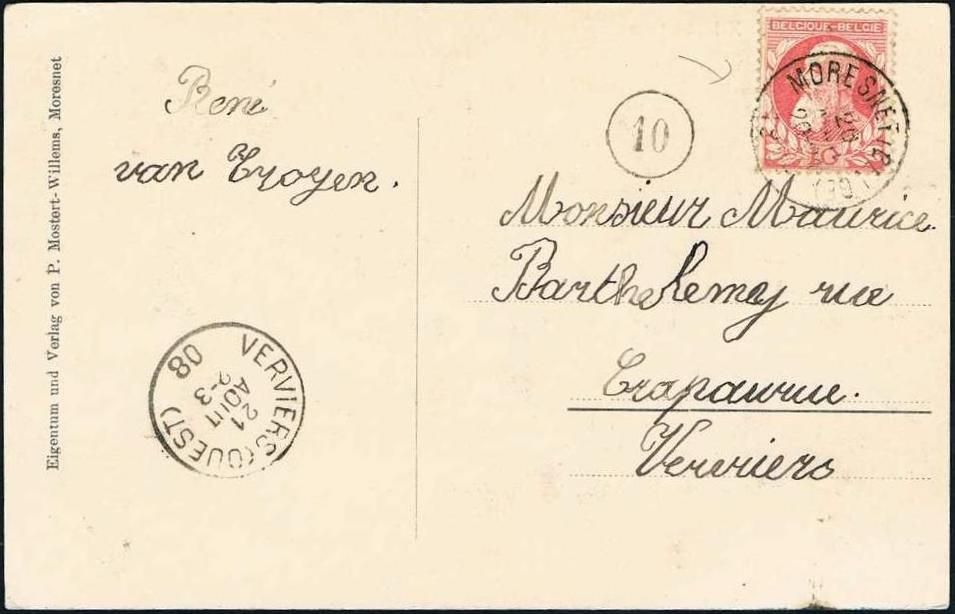 Eigentum und Verlag von P. Mostert-Willems, Moresnet
René
van Troyen.
VERVIERS (OUEST)
21
AOUT
2-3
08
BELGIQUE-BELGIË
MORESNET
10
Monsieur Maurice
Barthelemy rue
Crapaurue.
Verviers